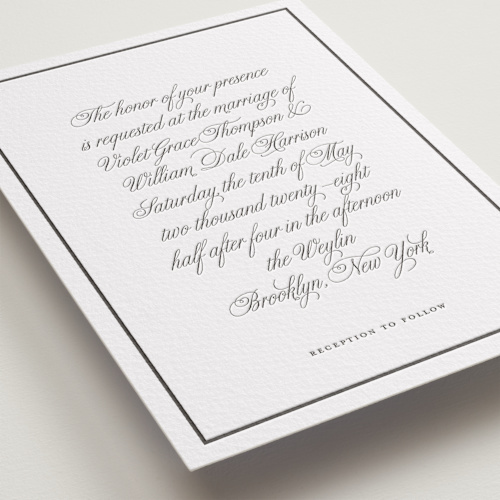 The honor of your presence
is requested at the marriage of
Violet Grace Thompson &
William Dale Harrison
Saturday, the tenth of May
two thousand twenty-eight
half after four in the afternoon
the Weylin
Brooklyn, New York
RECEPTION TO FOLLOW